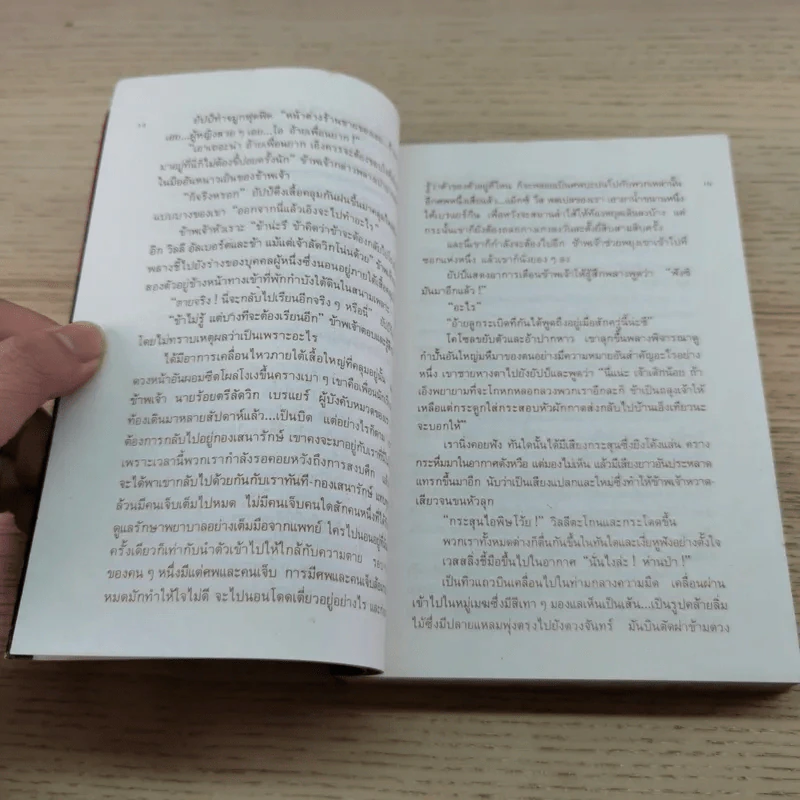 ๑๘
ฮัปป์ทำจมูกฟุดฟิด "หน้าต่างร้านขายของเอย...
เอย...ผู้หญิงสวย ๆ เอย...โอ อ้ายเพื่อนยาก !"
"เอาเถอะน่า อ้ายเพื่อนยาก เอ็งควรจะต้อง
มาอยู่ที่นี่ก็ไม่ต้องขี้บ่อยครั้งนัก" ข้าพเจ้ากล่าวพลาง
ในมืออันหนาวเย็นของข้าพเจ้า
"ก็จริงหรอก" ฮัปป์ดึงเสื้อคลุมกันฝนขึ้นมาคลุม
แบบบางของเขา "ออกจากนี่แล้วเอ็งจะไปทำอะไร"
ข้าพเจ้าหัวเราะ "ข้าน่ะรึ ข้าคิดว่าข้าจะต้องกลับ
อีก วิลลี อัลเบอร์ตและข้า แม้แต่เจ้าลัดวิกโน่นด้วย" ข้าพเจ้า
พลางชี้ไปยังร่างของบุคคลผู้หนึ่งซึ่งนอนอยู่ภายใต้เสื้อ
ของตัวอยู่ข้างหน้าทางเข้าที่พักกำบังใต้ดินในสนามเพลาะ
"ตายจริง ! นี่จะกลับไปเรียนอีกจริง ๆ หรือนี่"
"ข้าไม่รู้ แต่บางทีจะต้องเรียนอีก" ข้าพเจ้าตอบและรู้สึก
โดยไม่ทราบเหตุผลว่าเป็นเพราะอะไร
ได้มีอาการเคลื่อนไหวภายใต้เสื้อใหญ่ที่คลุมอยู่นั้น
ดวงหน้าอันผอมซีดโผล่โงงขึ้นครางเบา ๆ เขาคือเพื่อน
ข้าพเจ้า นายร้อยตรีลัดวิก เบรแยร์ ผู้บังคับหมวดของ
ท้องเดินมาหลายสัปดาห์แล้ว...เป็นบิด แต่อย่างไรก็ตาม
ต้องการกลับไปอยู่กองเสนารักษ์ เขาคงจะมาอยู่กับเราที่
เพราะเวลานี้พวกเรากำลังรอคอยหวังถึงการสงบศึก
จะได้พาเขากลับไปด้วยกันกับเราทันที-กองเสนารักษ์
ล้วนมีคนเจ็บเต็มไปหมด ไม่มีคนเจ็บคนใดสักคนหนึ่งที่ได้
ดูแลรักษาพยาบาลอย่างเต็มมือจากแพทย์ ใครไปนอนอยู่ที่
ครั้งเดียวก็เท่ากับนำตัวเข้าไปให้ใกล้กับความตาย
ของคน ๆ หนึ่งมีแต่ศพและคนเจ็บ การมีศพและคนเจ็บ
หมดมักทำให้ใจไม่ดี จะไปนอนโดดเดี่ยวอยู่อย่างไร
๑๙
รู้ว่าตัวของตัวอยู่ที่ไหน ก็จะพลอยเป็นศพปะปนไปกับพวกเหล่านั้น
อีกศพหนึ่งเสียแล้ว...แม็กซ์ ไวล์ พลเปลของเรา เอายาน้ำขนานหนึ่ง
ให้เบรแยร์กิน เพื่อหวังจะสมานลำไส้ให้ท้องหยุดเดินลงบ้าง แต่
กระนั้นเขาก็ยังต้องถอดกางเกงลงวันละตั้งสิบสามสิบครั้ง
และนี่เขาก็กำลังจะต้องไปอีก ข้าพเจ้าช่วยพยุงเขาเข้าไปที่
ซอกแห่งหนึ่ง แล้วเขาก็นั่งยอง ๆ ลง
ฮัปป์แสดงอาการเตือนข้าพเจ้าให้รู้สึกพลางพูดว่า "ฟังซี
มันมาอีกแล้ว !"
"อะไร"
"อ้ายลูกระเบิดที่กันได้พูดถึงอยู่เมื่อสักครู่นี้น่ะซี"
โคโซลขยับตัวและอ้าปากหาว เขาลุกขึ้นพลางพิจารณาดู
กำปั้นอันใหญ่มหึมาของตนอย่างมีความหมายอันสำคัญอะไรอย่าง
หนึ่ง เขาชายหางตาไปยังฮัปป์และพูดว่า "นี่แน่ะ เจ้าเด็กน้อย ถ้า
เอ็งพยายามที่จะโกหกหลอกลวงพวกเราอีกละก็ ข้าเป็นถลุงเจ้าให้
เหลือแต่กระดูกใส่กระสอบหัวผักกาดส่งกลับไปบ้านเอ็งเทียวนะ
จะบอกให้"
เรานิ่งคอยฟัง ทันใดนั้นได้มีเสียงกระสุนซึ่งยิงโค้งแล่น คราง
กระหึ่มมาในอากาศดังหวือ แต่มองไม่เห็น แล้วมีเสียงยาวอันประหลาด
แทรกขึ้นมาอีก นับว่าเป็นเสียงแปลกและใหม่ซึ่งทำให้ข้าพเจ้าหวาด-
เสียวจนขนหัวลุก
"กระสุนไอพิษโว้ย !" วิลลีตะโกนและกระโดดขึ้น
พวกเราทั้งหมดต่างก็ตื่นกันขึ้นในทันใดและเงี่ยหูฟังอย่างตั้งใจ
เวสสลิ่งชี้มือขึ้นไปในอากาศ "นั่นไงล่ะ ! ห่านป่า !"
เป็นทิวแถวบินเคลื่อนไปในท่ามกลางความมืด เคลื่อนผ่าน
เข้าไปในหมู่เมฆซึ่งมีสีเทา ๆ มองแลเห็นเป็นเส้น...เป็นรูปคล้ายลิ่ม
ไม้ซึ่งมีปลายแหลมพุ่งตรงไปยังดวงจันทร์ มันบินตัดผ่าข้ามดวง